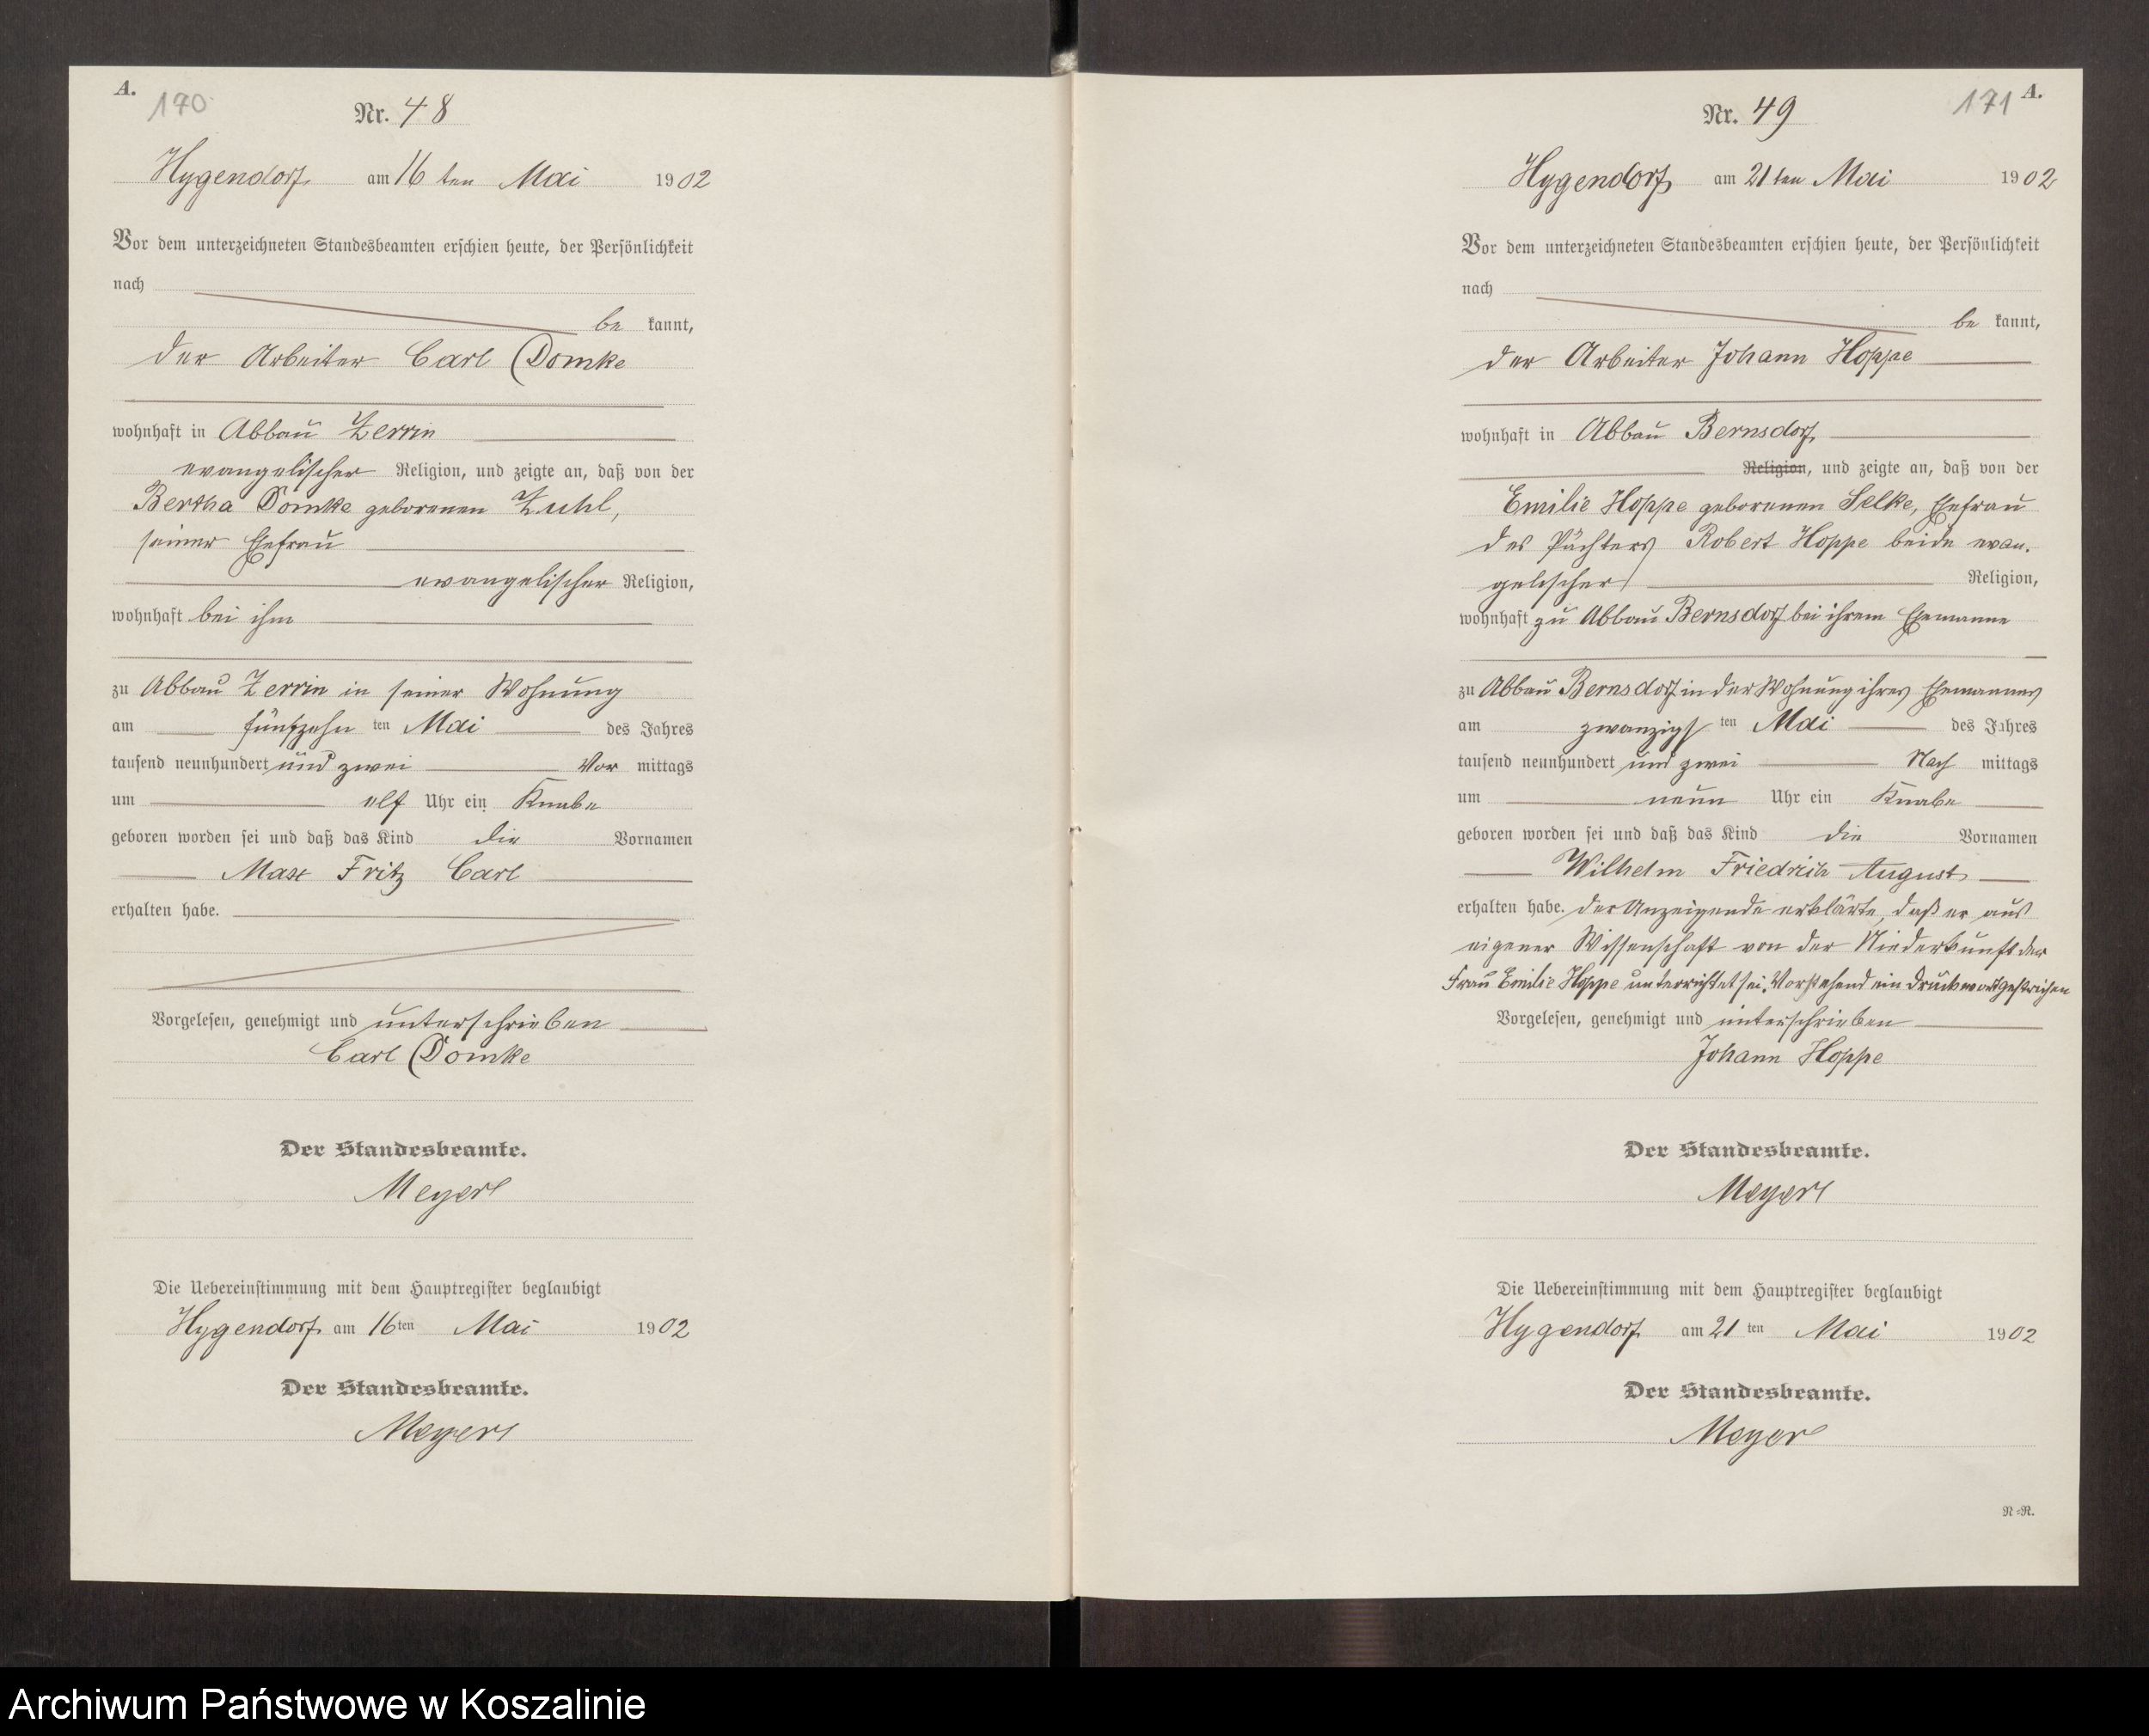 A.
170
Nr. 48
Hygendorf am 16ten Mai 1902
Vor dem unterzeichneten Standesbeamten erschien heute, der Persönlichkeit
nach
be kannt,
der Arbeiter Carl Domke
wohnhaft in Abbau Zerrin
evangelischer Religion, und zeigte an, daß von der
Bertha Domke geborenen Zuhl,
seiner Ehefrau
evangelischer Religion,
wohnhaft bei ihm
zu Abbau Zerrin in seiner Wohnung
am fünfzehn ten Mai des Jahres
tausend neunhundert und zwei Vor mittags
um elf Uhr ein Knabe
geboren worden sei und daß das Kind die Vornamen
Max Fritz Carl
erhalten habe.
Vorgelesen, genehmigt und unterschrieben
Carl Domke
Der Standesbeamte.
Meyer
Die Uebereinstimmung mit dem Hauptregister beglaubigt
Hygendorf am 16ten Mai 1902
Der Standesbeamte.
Meyer
171 A.
Nr. 49
Hygendorf am 21ten Mai 1902
Vor dem unterzeichneten Standesbeamten erschien heute, der Persönlichkeit
nach
be kannt,
der Arbeiter Johann Hoppe
wohnhaft in Abbau Bernsdorf
Religion, und zeigte an, daß von der
Emilie Hoppe geborenen Selke, Ehefrau
des Pächters Robert Hoppe beide evan.
gelischer Religion,
wohnhaft zu Abbau Bernsdorf bei ihrem Ehemanne
zu Abbau Bernsdorf in der Wohnung ihres Ehemannes
am zwanzigs ten Mai des Jahres
tausend neunhundert und zwei Nach mittags
um neun Uhr ein Knabe
geboren worden sei und daß das Kind die Vornamen
Wilhelm Friedrich August
erhalten habe. Der Anzeigende erklärte, daß er aus
eigener Wissenschaft von der Niederkunft der
Frau Emilie Hoppe unterrichtet sei. Vorstehend ein Druckwort gestrichen
Vorgelesen, genehmigt und unterschrieben
Johann Hoppe
Der Standesbeamte.
Meyer
Die Uebereinstimmung mit dem Hauptregister beglaubigt
Hygendorf am 21ten Mai 1902
Der Standesbeamte.
Meyer
N=R.
Archiwum Państwowe w Koszalinie